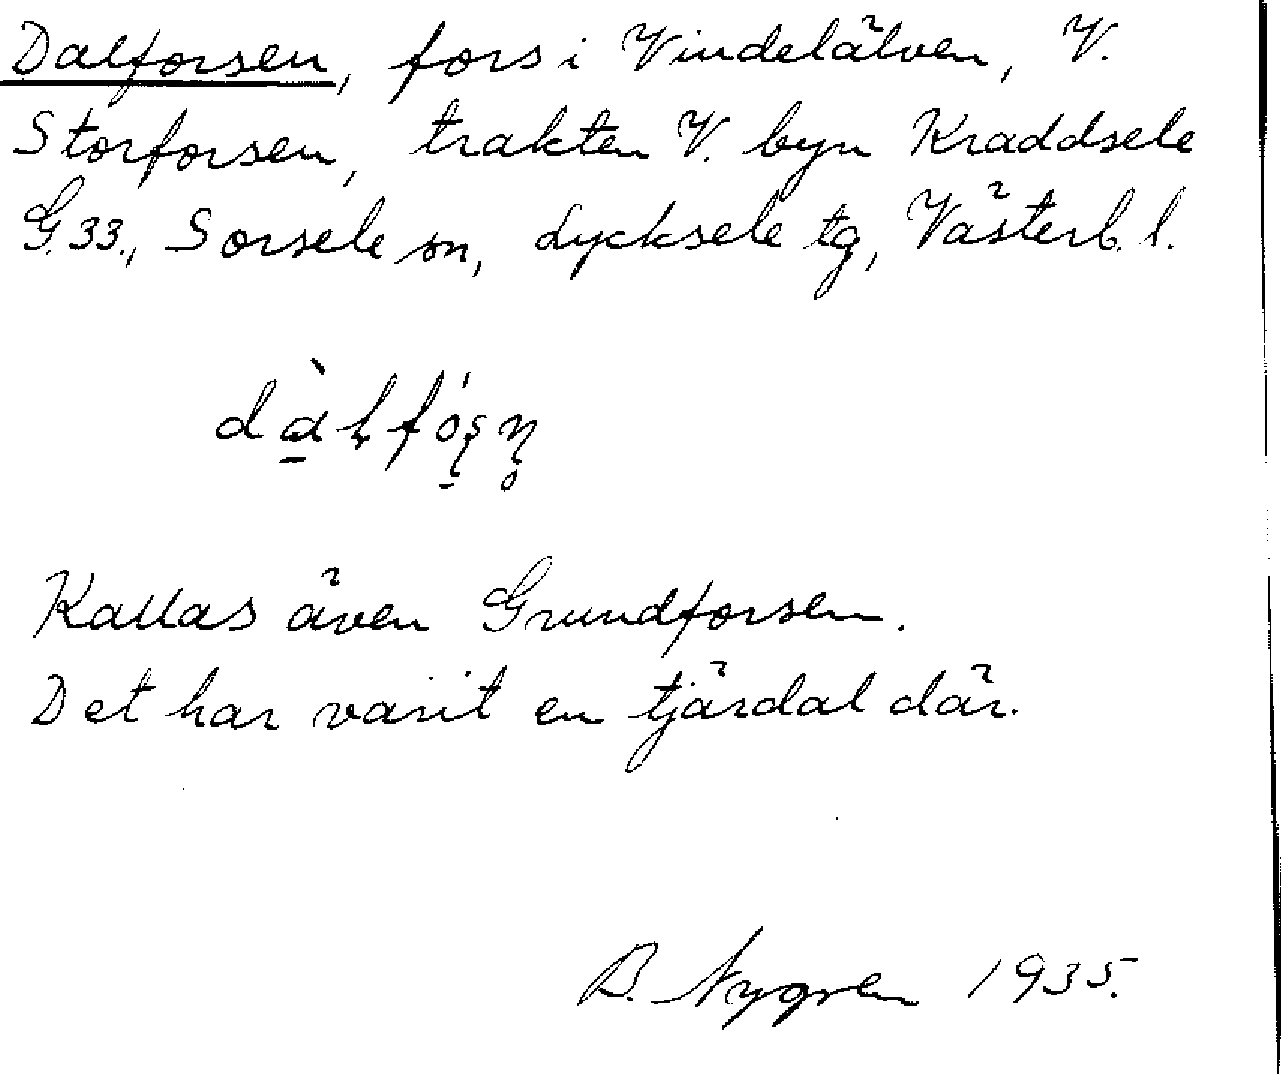 Dalforsen, fors i Vindelälven, V.
Storforsen, trakten V. byn Kraddsele
G.33., Sorsele sn, Lycksele tg, Västerb. l.
Kallas även Grundforsen.
Det har varit en tjärdal där.
B. Nygren 1935.